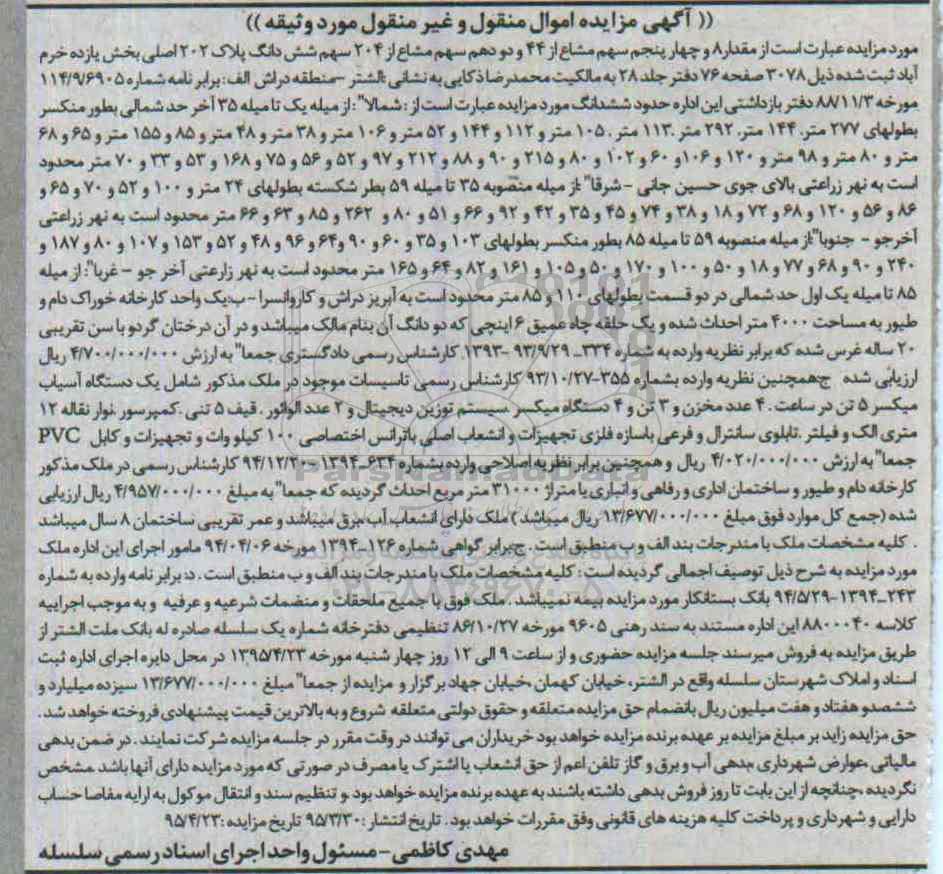 (( آگهی مزایده اموال منقول و غیر منقول مورد وثیقه ))
مورد مزایده عبارت است از مقدار ۸ و چهار پنجم سهم مشاع از ۴۴ و دو دهم سهم مشاع از ۲۰۴ سهم شش دانگ پلاک ۲۰۲ اصلی بخش یازده خرم
آباد ثبت شده ذیل ۳۰۷۸ صفحه ۷۶ دفتر جلد ۲۸ به مالکیت محمدرضا ذکایی به نشانی :الشتر –منطقه دراش الف: برابر نامه شماره ۱۱۴/۹/۶۹۰۵
مورخه ۸۸/۱۱/۳ دفتر بازداشتی این اداره حدود ششدانگ مورد مزایده عبارت است از : شمالا" : از میله یک تا میله ۳۵ آخر حد شمالی بطور منکسر
بطولهای ۲۷۷ متر، ۱۴۴ متر، ۲۹۲ متر ،۱۱۳ متر ، ۱۰۵ متر و ۱۱۲ و ۱۴۴ و ۵۲ متر و ۱۰۶ متر و ۳۸ متر و ۴۸ متر و ۸۵ و ۱۵۵ متر و ۶۵ و ۶۸
متر و ۸۰ متر و ۹۸ متر و ۱۲۰ و ۱۰۶ و ۶۰ و ۱۰۲ و ۸۰ و ۲۱۵ و ۹۰ و ۸۸ و ۲۱۲ و ۹۷ و ۵۲ و ۵۶ و ۷۵ و ۱۶۸ و ۵۳ و ۳۳ و ۷۰ متر محدود
است به نهر زراعتی بالای جوی حسین جانی – شرقا" :از میله منصوبه ۳۵ تا میله ۵۹ بطر شکسته بطولهای ۲۴ متر و ۱۰۰ و ۵۲ و ۷۰ و ۶۵ و
۸۶ و ۵۶ و ۱۲۰ و ۶۸ و ۷۲ و ۱۸ و ۳۸ و ۷۴ و ۴۵ و ۳۵ و ۴۲ و ۹۲ و ۶۶ و ۵۱ و ۸۰ و ۲۶۲ و ۸۵ و ۶۳ و ۶۶ متر محدود است به نهر زراعتی
آخرجو – جنوبا":از میله منصوبه ۵۹ تا میله ۸۵ بطور منکسر بطولهای ۱۰۳ و ۳۵ و ۶۰ و ۹۰ و ۶۴ و ۹۶ و ۴۸ و ۵۲ و ۱۵۳ و ۱۰۷ و ۸۰ و ۱۸۷ و
۲۴۰ و ۹۰ و ۶۸ و ۷۷ و ۱۸ و ۵۰ و ۱۰۰ و ۱۷۰ و ۵۰ و ۱۰۵ و ۱۶۱ و ۸۲ و ۶۴ و ۱۶۵ متر محدود است به نهر زارعتی آخر جو – غربا": از میله
۸۵ تا میله یک اول حد شمالی در دو قسمت بطولهای ۱۱۰ و ۸۵ متر محدود است به آبریز دراش و کاروانسرا – ب:یک واحد کارخانه خوراک دام و
طیور به مساحت ۴۰۰۰ متر احداث شده و یک حلقه چاه عمیق ۶ اینچی که دو دانگ آن بنام مالک میباشد و در آن درختان گردو با سن تقریبی
۲۰ ساله غرس شده که برابر نظریه وارده به شماره ۳۳۴ـ ۹۳/۹/۲۹ -۱۳۹۳ کارشناس رسمی دادگستری جمعا" به ارزش ۴/۷۰۰/۰۰۰/۰۰۰ ریال
ارزیابی شده ج:همچنین نظریه وارده بشماره ۳۵۵-۹۳/۱۰/۲۷ کارشناس رسمی تاسیسات موجود در ملک مذکور شامل یک دستگاه آسیاب
میکسر ۵ تن در ساعت ، ۴ عدد مخزن و ۳ تن و ۴ دستگاه میکسر ،سیستم توزین دیجیتال و ۲ عدد الواتور ، قیف ۵ تنی ،کمپرسور ،نوار نقاله ۱۲
متری الک و فیلتر ،تابلوی سانترال و فرعی باسازه فلزی تجهیزات و انشعاب اصلی باترانس اختصاصی ۱۰۰ کیلو وات و تجهیزات و کابل PVC
جمعا" به ارزش ۴/۰۲۰/۰۰۰/۰۰۰ ریال و همچنین برابر نظریه اصلاحی وارده بشماره ۶۳۴ـ۱۳۹۴ – ۹۴/۱۲/۲۰ کارشناس رسمی در ملک مذکور
کارخانه دام و طیور و ساختمان اداری و رفاهی و انباری با متراژ ۳۱۰۰۰ متر مربع احداث گردیده که جمعا" به مبلغ ۴/۹۵۷/۰۰۰/۰۰۰ ریال ارزیابی
شده (جمع کل موارد فوق مبلغ ۱۳/۶۷۷/۰۰۰/۰۰۰ ریال میباشد ) ملک دارای انشعاب آب ،برق میباشد و عمر تقریبی ساختمان ۸ سال میباشد
. کلیه مشخصات ملک با مندرجات بند الف و ب منطبق است . ج:برابر گواهی شماره ۱۲۶-۱۳۹۴ مورخه ۹۴/۰۴/۰۶ مامور اجرای این اداره ملک
مورد مزایده به شرح ذیل توصیف اجمالی گردیده است : کلیه مشخصات ملک با مندرجات بند الف و ب منطبق است . د: برابر نامه وارده به شماره
۲۴۳-۱۳۹۴-۹۴/۵/۲۹ بانک بستانکار مورد مزایده بیمه نمیباشد . ملک فوق با جمیع ملحقات و منضمات شرعیه و عرفیه و به موجب اجراییه
کلاسه ۸۸۰۰۰۴۰ این اداره مستند به سند رهنی ۹۶۰۵ مورخه ۸۶/۱۰/۲۷ تنظیمی دفترخانه شماره یک سلسله صادره له بانک ملت الشتر از
طریق مزایده به فروش میرسند جلسه مزایده حضوری و از ساعت ۹ الی ۱۲ روز چهار شنبه مورخه ۱۳۹۵/۴/۲۳ در محل دایره اجرای اداره ثبت
اسناد و املاک شهرستان سلسله واقع در الشتر، خیابان کهمان ،خیابان جهاد برگزار و مزایده از جمعا" مبلغ ۱۳/۶۷۷/۰۰۰/۰۰۰ سیزده میلیارد و
ششصدو هفتاد و هفت میلیون ریال بانضمام حق مزایده متعلقه و حقوق دولتی متعلقه شروع و به بالاترین قیمت پیشنهادی فروخته خواهد شد.
حق مزایده زاید بر مبلغ مزایده بر عهده برنده مزایده خواهد بود خریداران می توانند در وقت مقرر در جلسه مزایده شرکت نمایند . در ضمن بدهی
مالیاتی ،عوارض شهرداری ،بدهی آب و برق و گاز تلفن اعم از حق انشعاب یا اشترک یا مصرف در صورتی که مورد مزایده دارای آنها باشد ،مشخص
نگردیده ،چنانچه از این بابت تا روز فروش بدهی داشته باشند به عهده برنده مزایده خواهد بود .و تنظیم سند و انتقال موکول به ارایه مفاصا حساب
دارایی و شهرداری و پرداخت کلیه هزینه های قانونی وفق مقررات خواهد بود . تاریخ انتشار : ۹۵/۳/۳۰ تاریخ مزایده : ۹۵/۴/۲۳
مهدی کاظمی – مسئول واحد اجرای اسناد رسمی سلسله